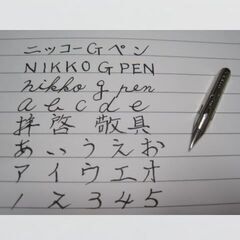 ニッコーGペン
NIKKO G PEN
nikko g pen
a b c d e
拝啓 敬具
あいうえお
アイウエオ
1 2 3 4 5